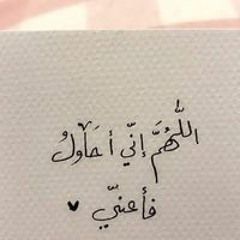 اللَّهُمَّ إنّي أحَاولُ
فأعنّي